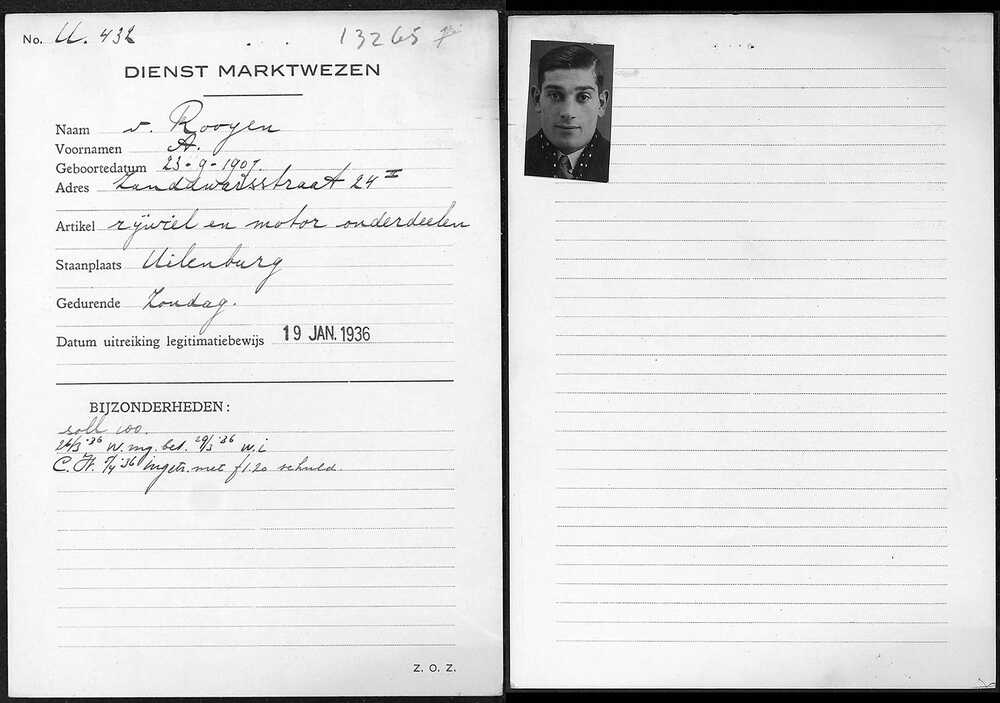 No. U. 432 13265
DIENST MARKTWEZEN
Naam v. Rooyen
Voornamen A.
Geboortedatum 23-9-1907.
Adres Zanddwarsstraat 24 II
Artikel rijwiel en motor onderdeelen
Staanplaats Uilenburg
Gedurende Zondag.
Datum uitreiking legitimatiebewijs 19 JAN. 1936
BIJZONDERHEDEN:
soll 100.
24/3 '36 W. mg. bet. 29/3 '36 w.i
C. H. 5/4 '36 ingetr. met f 1.20 schuld.
Z. O. Z.